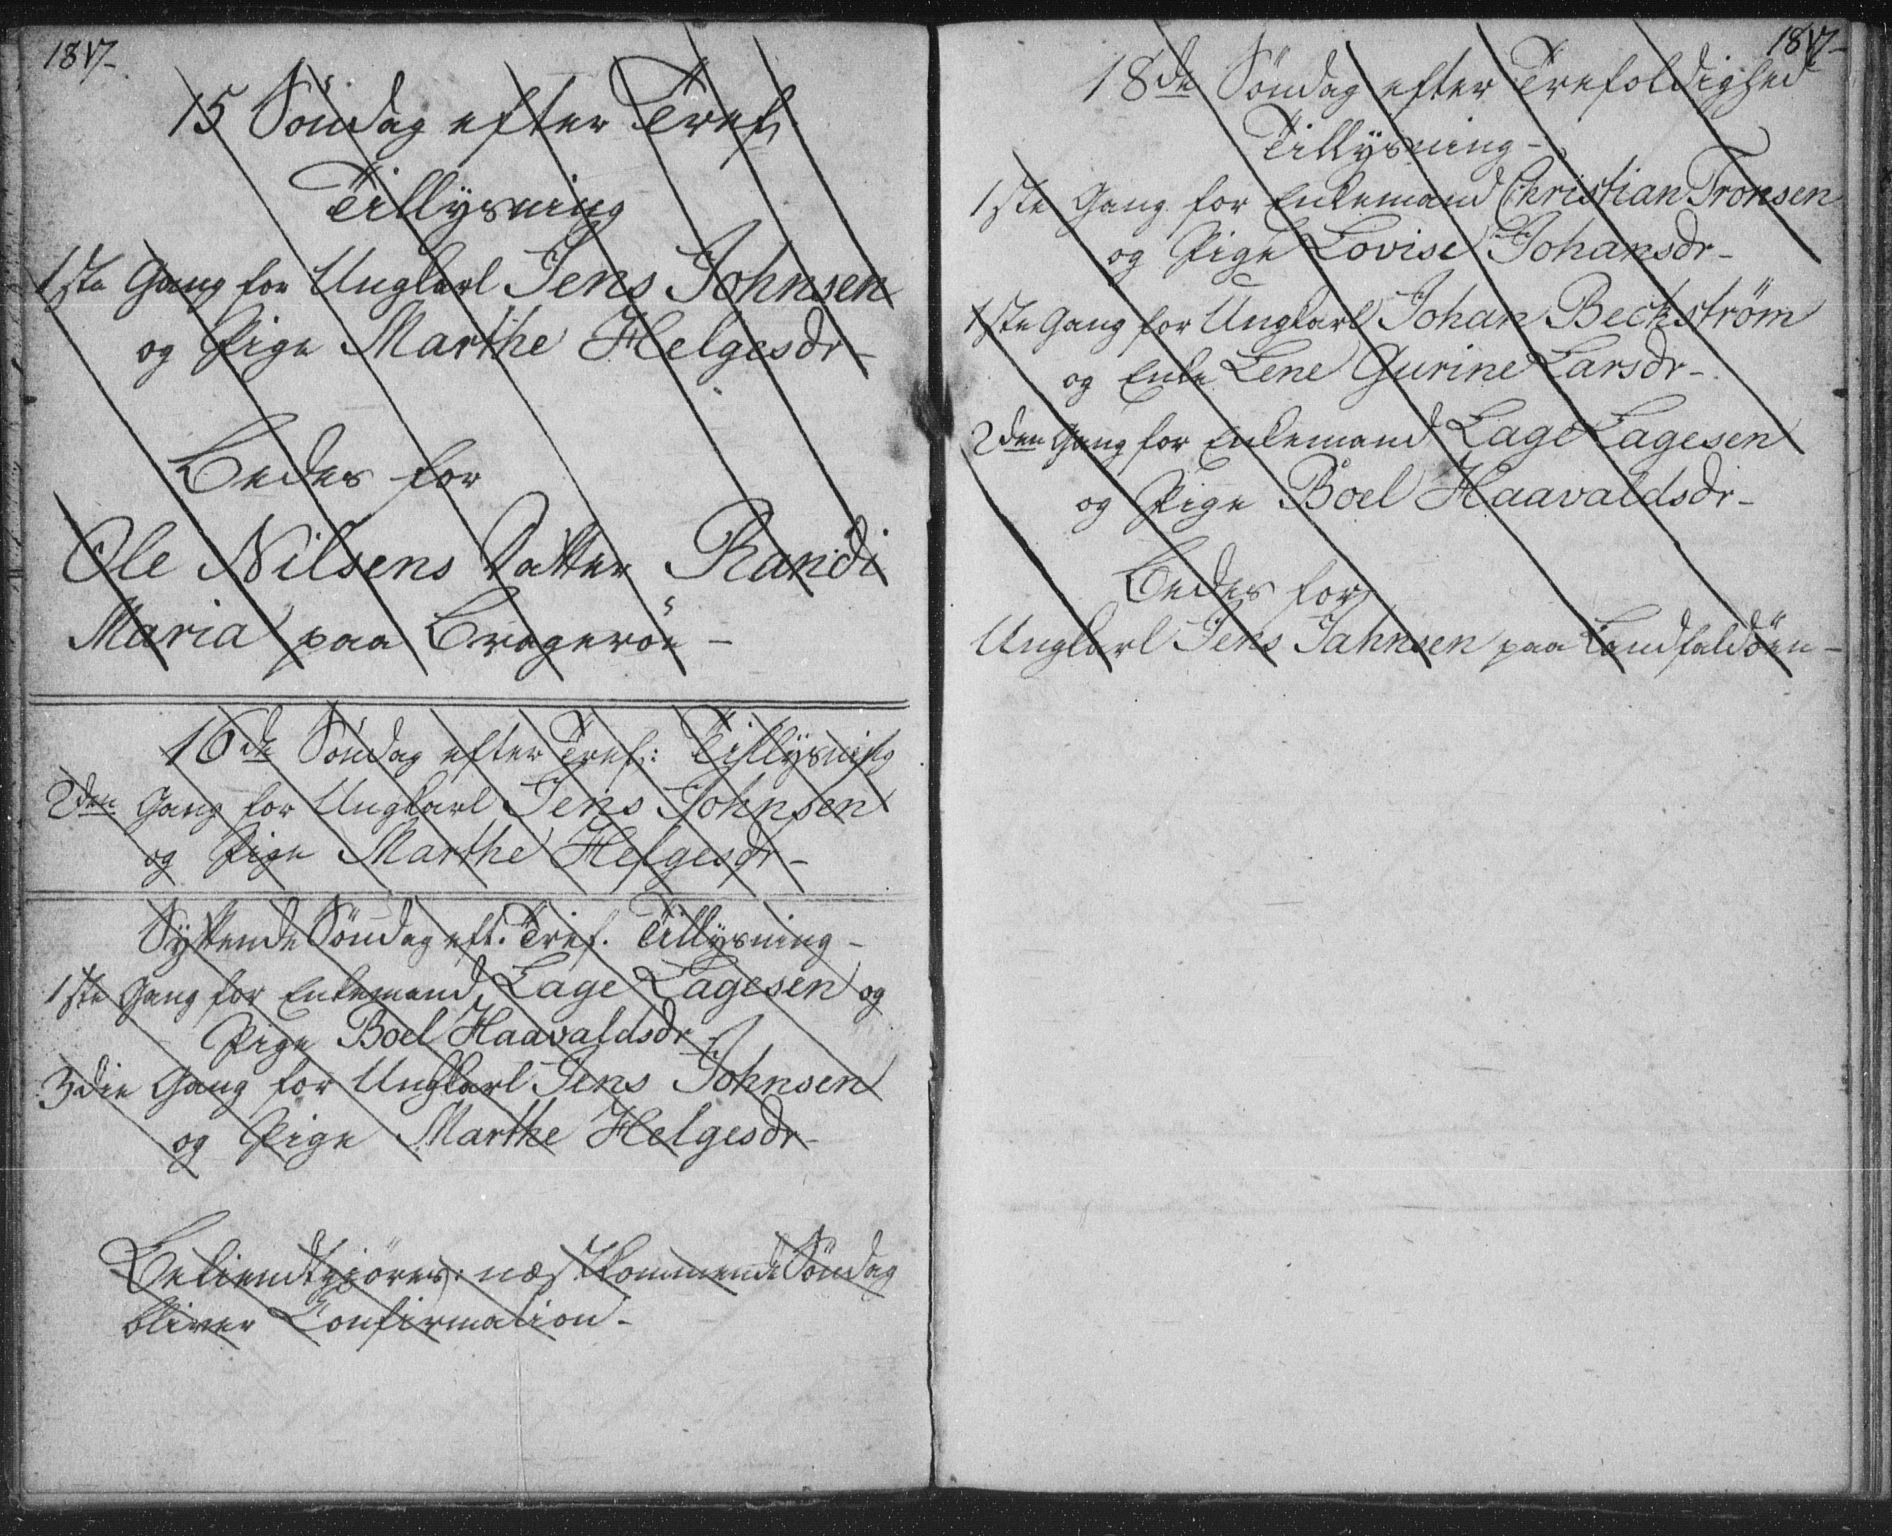 1817-
15 Søndag efter Tref.
Tillysning
1ste Gang for Ungkarl Jens Johnsen
og Pige Marthe Helgesdr-
Bedes for
Ole Nilsens Datter Randi
Maria paa Bragerøe -
16de Søndag efter Tref: Tillysning
2den Gang for Ungkarl Jens Johnsen
og Pige Marthe Helgesdr-
Syttende Søndag eft. Tref. Tillysning -
1ste Gang for Enkemand Lage Lagesen og
Pige Boel Haavaldsdr-
3die Gang for Ungkarl Jens Johnsen
og Pige Marthe Helgesdr-
Bekiendtgiøres: næstkommende Søndag
bliver Confirmation-
1817-
18de Søndag efter Trefoldighed
Tillysning-
1ste Gang for Enkemand Christian Tronsen
og Pige Lovise Johansdr-
1ste Gang for Ungkarl Johan Beckstrøm
og Enke Lene Gurine Larsdr-
2den Gang for Enkemand Lage Lagesen
og Pige Boel Haavaldsdr-
Bedes for
Ungkarl Jens Jahnsen paa Landfaldøen-